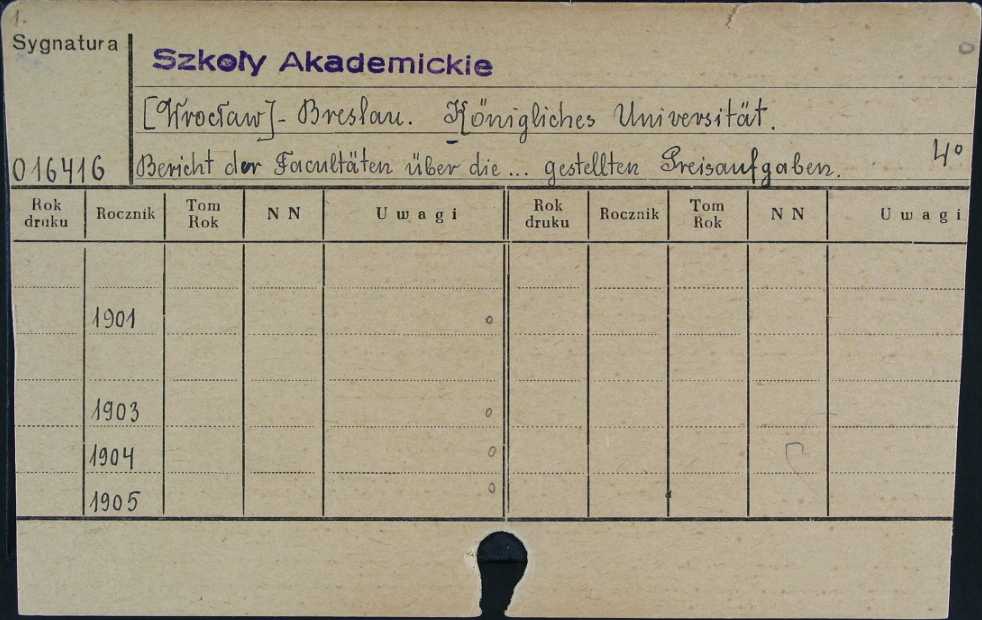 1.
Sygnatura
Szkoły Akademickie
[Wrocław]- Breslau. Königliches Universität.
016416 Bericht der Facultäten über die ... gestellten Preisaufgaben. 4°
Rok druku Rocznik Tom Rok NN Uwagi Rok druku Rocznik Tom Rok NN Uwagi
1901 o
1903 o
1904 o
1905 o